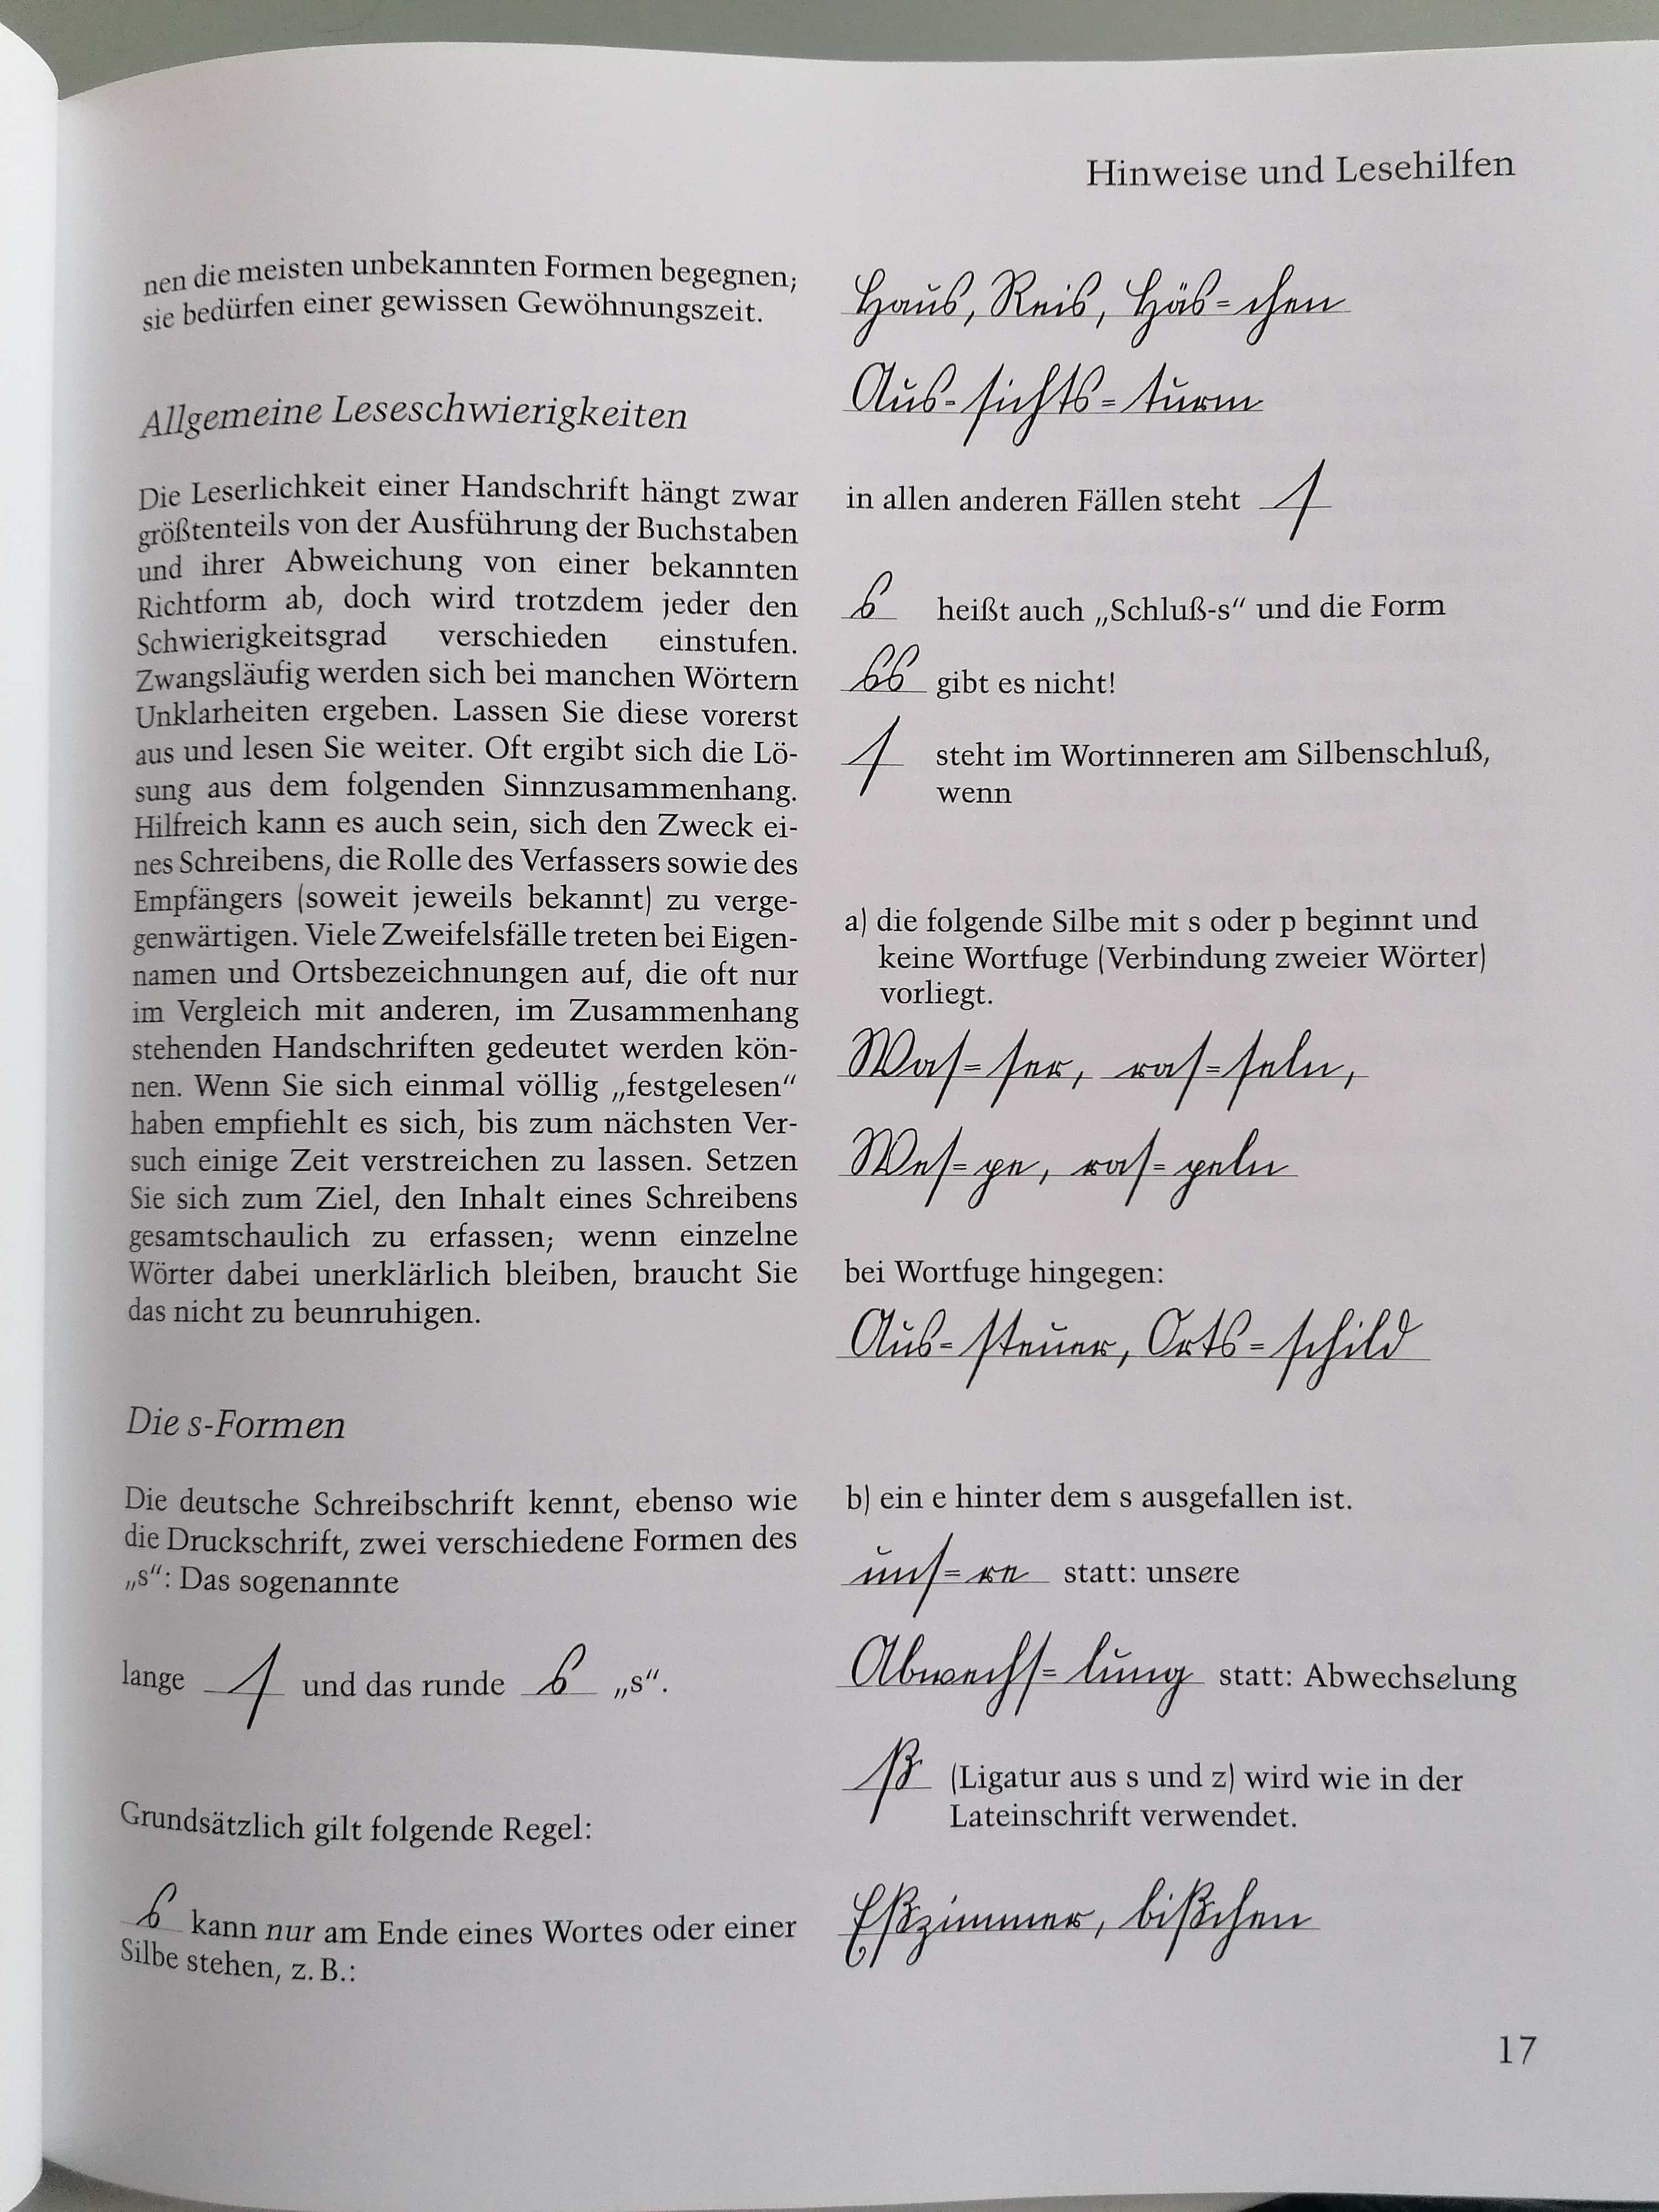 Hinweise und Lesehilfen
nen die meisten unbekannten Formen begegnen;
sie bedürfen einer gewissen Gewöhnungszeit.
Allgemeine Leseschwierigkeiten
Die Leserlichkeit einer Handschrift hängt zwar
größtenteils von der Ausführung der Buchstaben
und ihrer Abweichung von einer bekannten
Richtform ab, doch wird trotzdem jeder den
Schwierigkeitsgrad verschieden einstufen.
Zwangsläufig werden sich bei manchen Wörtern
Unklarheiten ergeben. Lassen Sie diese vorerst
aus und lesen Sie weiter. Oft ergibt sich die Lö-
sung aus dem folgenden Sinnzusammenhang.
Hilfreich kann es auch sein, sich den Zweck ei-
nes Schreibens, die Rolle des Verfassers sowie des
Empfängers (soweit jeweils bekannt) zu verge-
genwärtigen. Viele Zweifelsfälle treten bei Eigen-
namen und Ortsbezeichnungen auf, die oft nur
im Vergleich mit anderen, im Zusammenhang
stehenden Handschriften gedeutet werden kön-
nen. Wenn Sie sich einmal völlig „festgelesen“
haben empfiehlt es sich, bis zum nächsten Ver-
such einige Zeit verstreichen zu lassen. Setzen
Sie sich zum Ziel, den Inhalt eines Schreibens
gesamtschaulich zu erfassen; wenn einzelne
Wörter dabei unerklärlich bleiben, braucht Sie
das nicht zu beunruhigen.
Die s-Formen
Die deutsche Schreibschrift kennt, ebenso wie
die Druckschrift, zwei verschiedene Formen des
„s“: Das sogenannte
lange ſ und das runde s „s“.
Grundsätzlich gilt folgende Regel:
s kann nur am Ende eines Wortes oder einer
Silbe stehen, z. B.:
Haus, Reis, Häs=chen
Aus=ſichts=turm
in allen anderen Fällen steht ſ
s heißt auch „Schluß-s“ und die Form
ss gibt es nicht!
ſ steht im Wortinneren am Silbenschluß,
wenn
a) die folgende Silbe mit s oder p beginnt und
keine Wortfuge (Verbindung zweier Wörter)
vorliegt.
Waſ=ſer, raſ=ſeln,
Weſ=pe, raſ=peln
bei Wortfuge hingegen:
Aus=ſteuer, Orts=ſchild
b) ein e hinter dem s ausgefallen ist.
unſ=re statt: unsere
Abwechſ=lung statt: Abwechselung
ß (Ligatur aus s und z) wird wie in der
Lateinschrift verwendet.
Eßzimmer, bißchen
17